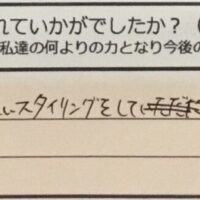 れていかがでしたか？（
私達の何よりの力となり今後の
いスタイリングをして